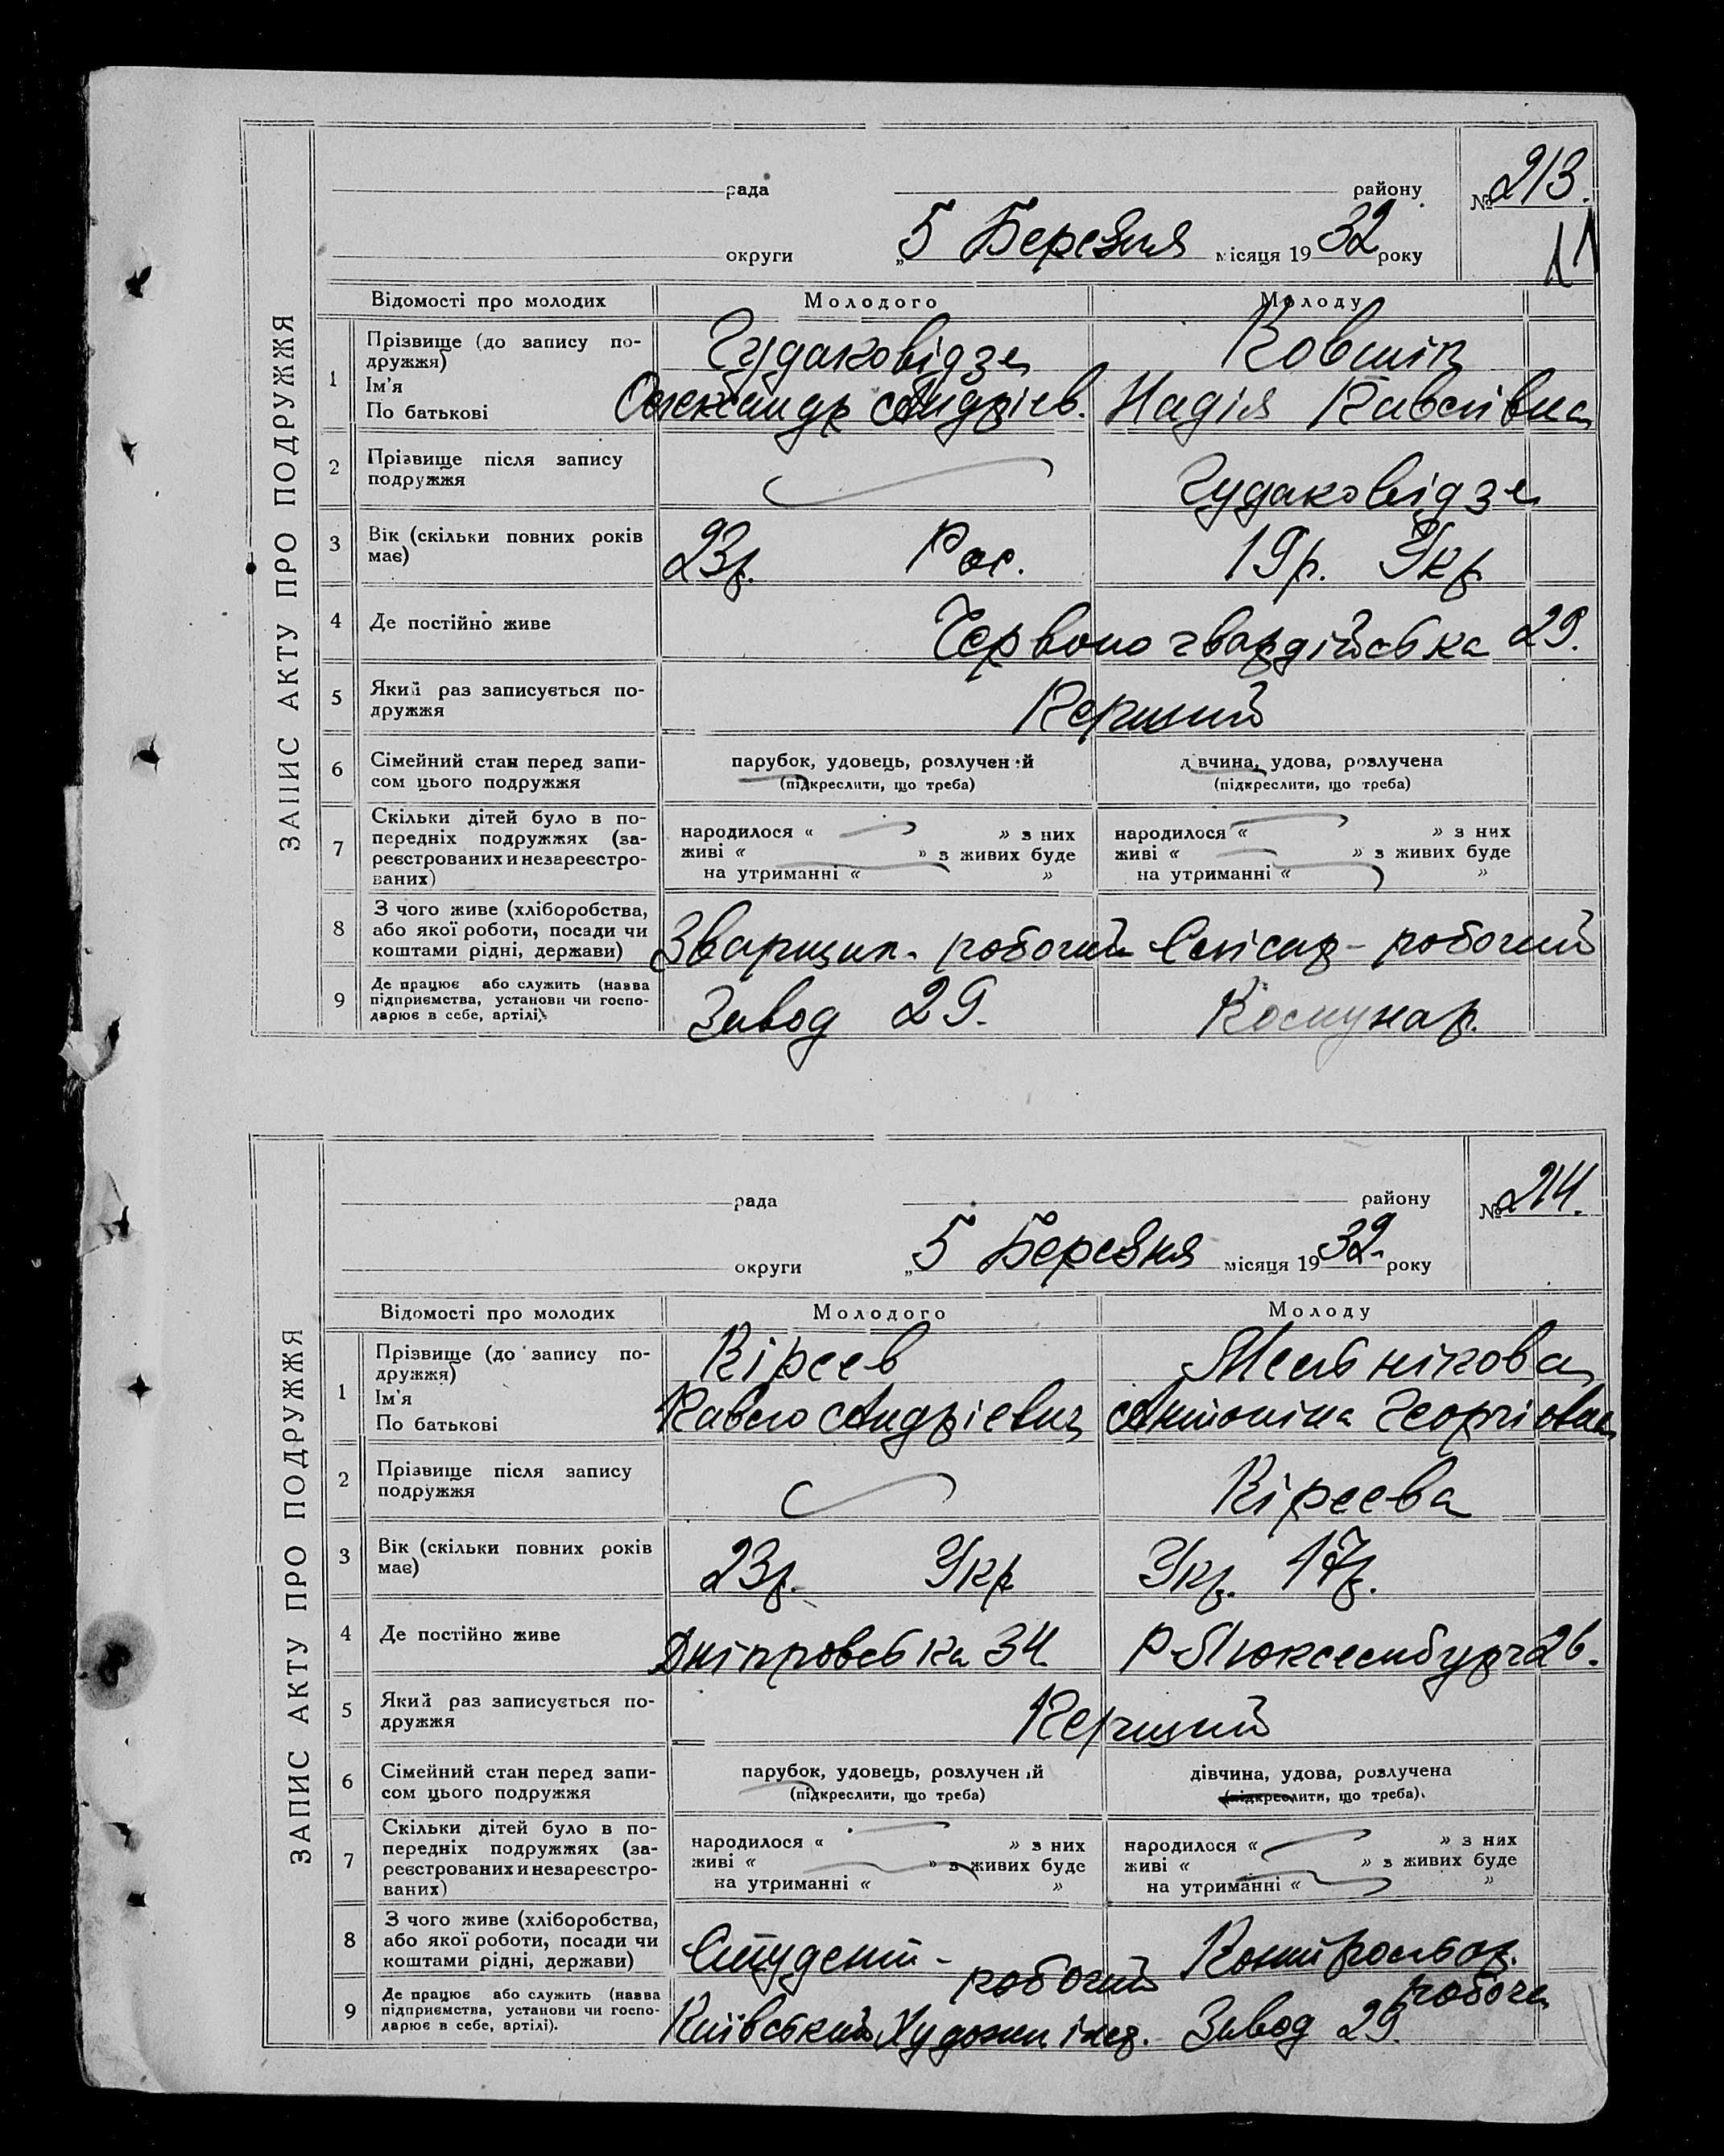 ЗАПИС АКТУ ПРО ПОДРУЖЖЯ
рада району № 213.
округи „5 Березня місяця 1932 року 11
Відомості про молодих Молодого Молоду
1 Прізвище (до запису по-
дружжя) Гудаковідзе Ковшік
Ім'я
По батькові Олександр Андрієв. Надія Павлівна
2 Прізвище після запису
подружжя Гудаковідзе
3 Вік (скільки повних років
має) 23р. Рос. 19р. Укр
4 Де постійно живе Червоногвардійська 29.
5 Який раз записується по-
дружжя Перший
6 Сімейний стан перед запи-
сом цього подружжя
парубок, удовець, розлучений
(підкреслити, що треба)
дівчина, удова, розлучена
(підкреслити, що треба)
7 Скільки дітей було в по-
передніх подружжях (за-
реєстрованих и незареєстро-
ваних)
народилося « » з них
живі « » з живих буде
на утриманні « »
народилося « » з них
живі « » з живих буде
на утриманні « »
8 З чого живе (хліборобства,
або якої роботи, посади чи
коштами рідні, держави) Зварщик - робочий Слісар - робочий
9 Де працює або служить (назва
підприємства, установи чи госпо-
дарює в себе, артілі). Завод 29. Комунар.
ЗАПИС АКТУ ПРО ПОДРУЖЖЯ
рада району № 214.
округи „5 Березня місяця 1932. року
Відомості про молодих Молодого Молоду
1 Прізвище (до запису по-
дружжя) Кірєєв Мельнікова
Ім'я
По батькові Павло Андрієвич Антоніна Георгіовна
2 Прізвище після запису
подружжя Кірєєва
3 Вік (скільки повних років
має) 23р. Укр Укр. 17р.
4 Де постійно живе Дніпровська 34. Р-Люксембург 26.
5 Який раз записується по-
дружжя Перший
6 Сімейний стан перед запи-
сом цього подружжя
парубок, удовець, розлучений
(підкреслити, що треба)
дівчина, удова, розлучена
(підкреслити, що треба).
7 Скільки дітей було в по-
передніх подружжях (за-
реєстрованих и незареєстро-
ваних)
народилося « » з них
живі « » з живих буде
на утриманні « »
народилося « » з них
живі « » з живих буде
на утриманні « »
8 З чого живе (хліборобства,
або якої роботи, посади чи
коштами рідні, держави) Студент - робочий Контрольор. робоча
9 Де працює або служить (назва
підприємства, установи чи госпо-
дарює в себе, артілі). Київський Художн. Завод 29.